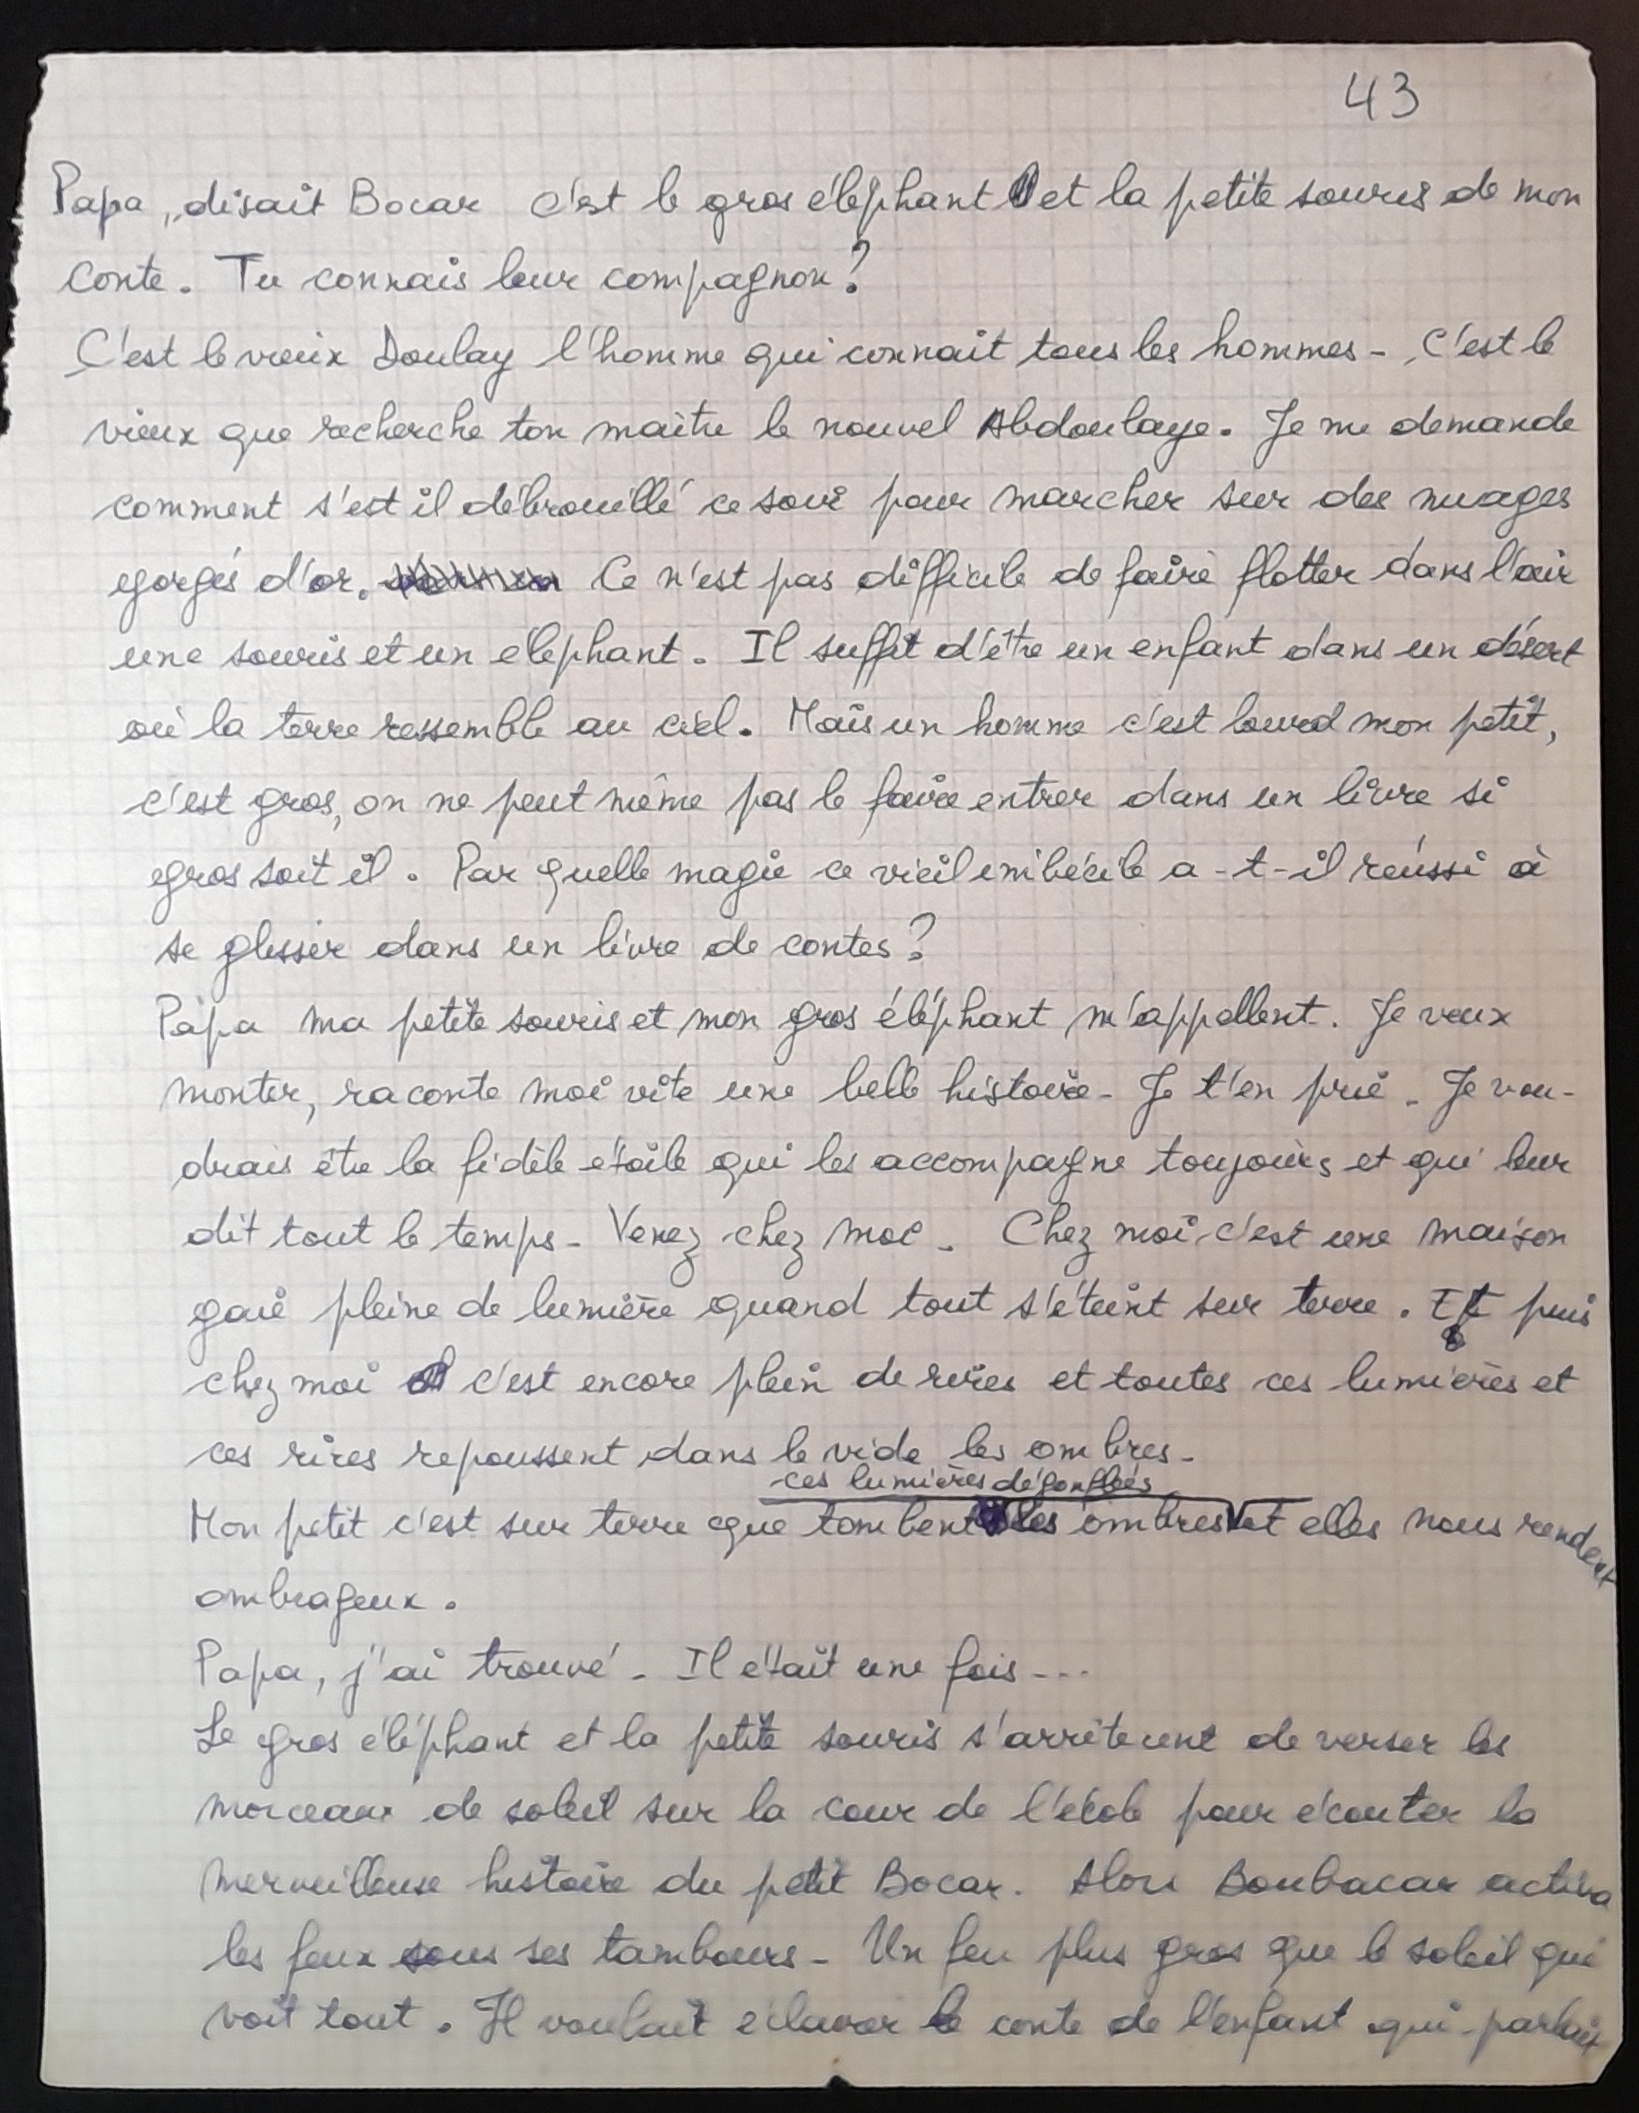 43
Papa, disait Bocar c'est le gros éléphant et la petite souris de mon
conte. Tu connais leur compagnon ?
C'est le vieux Doulay l'homme qui connait tous les hommes - C'est le
vieux que recherche ton maître le nouvel Abdoulaye. Je me demande
comment s'est il débrouillé ce soir pour marcher sur des nuages
gorgés d'or. Ce n'est pas difficile de faire flotter dans l'air
une souris et un éléphant. Il suffit d'être un enfant dans un désert
où la terre ressemble au ciel. Mais un homme c'est lourd mon petit,
c'est gros, on ne peut même pas le faire entrer dans un livre si
gros soit il. Par quelle magie ce vieil imbécile a-t-il réussi à
se glisser dans un livre de contes ?
Papa ma petite souris et mon gros éléphant m'appellent. Je veux
monter, raconte moi vite une belle histoire - Je t'en prie - Je vou-
drais être la fidèle étoile qui les accompagne toujours et qui leur
dit tout le temps - Venez chez moi - Chez moi c'est une maison
gaie pleine de lumière quand tout s'éteint sur terre. Et puis
chez moi c'est encore plein de rires et toutes ces lumières et
ces rires repoussent dans le vide les ombres -
ces lumières dégonflées
Mon petit c'est sur terre que tombent les ombres et elles nous rendent
ombrageux.
Papa, j'ai trouvé - Il était une fois ---
Le gros éléphant et la petite souris s'arrêtèrent de verser les
morceaux de soleil sur la cour de l'école pour écouter la
merveilleuse histoire du petit Bocar. Alors Boubacar activa
les feux sous ses tambours - Un feu plus gros que le soleil qui
voit tout. Il voulait éclairer le conte de l'enfant qui parlait